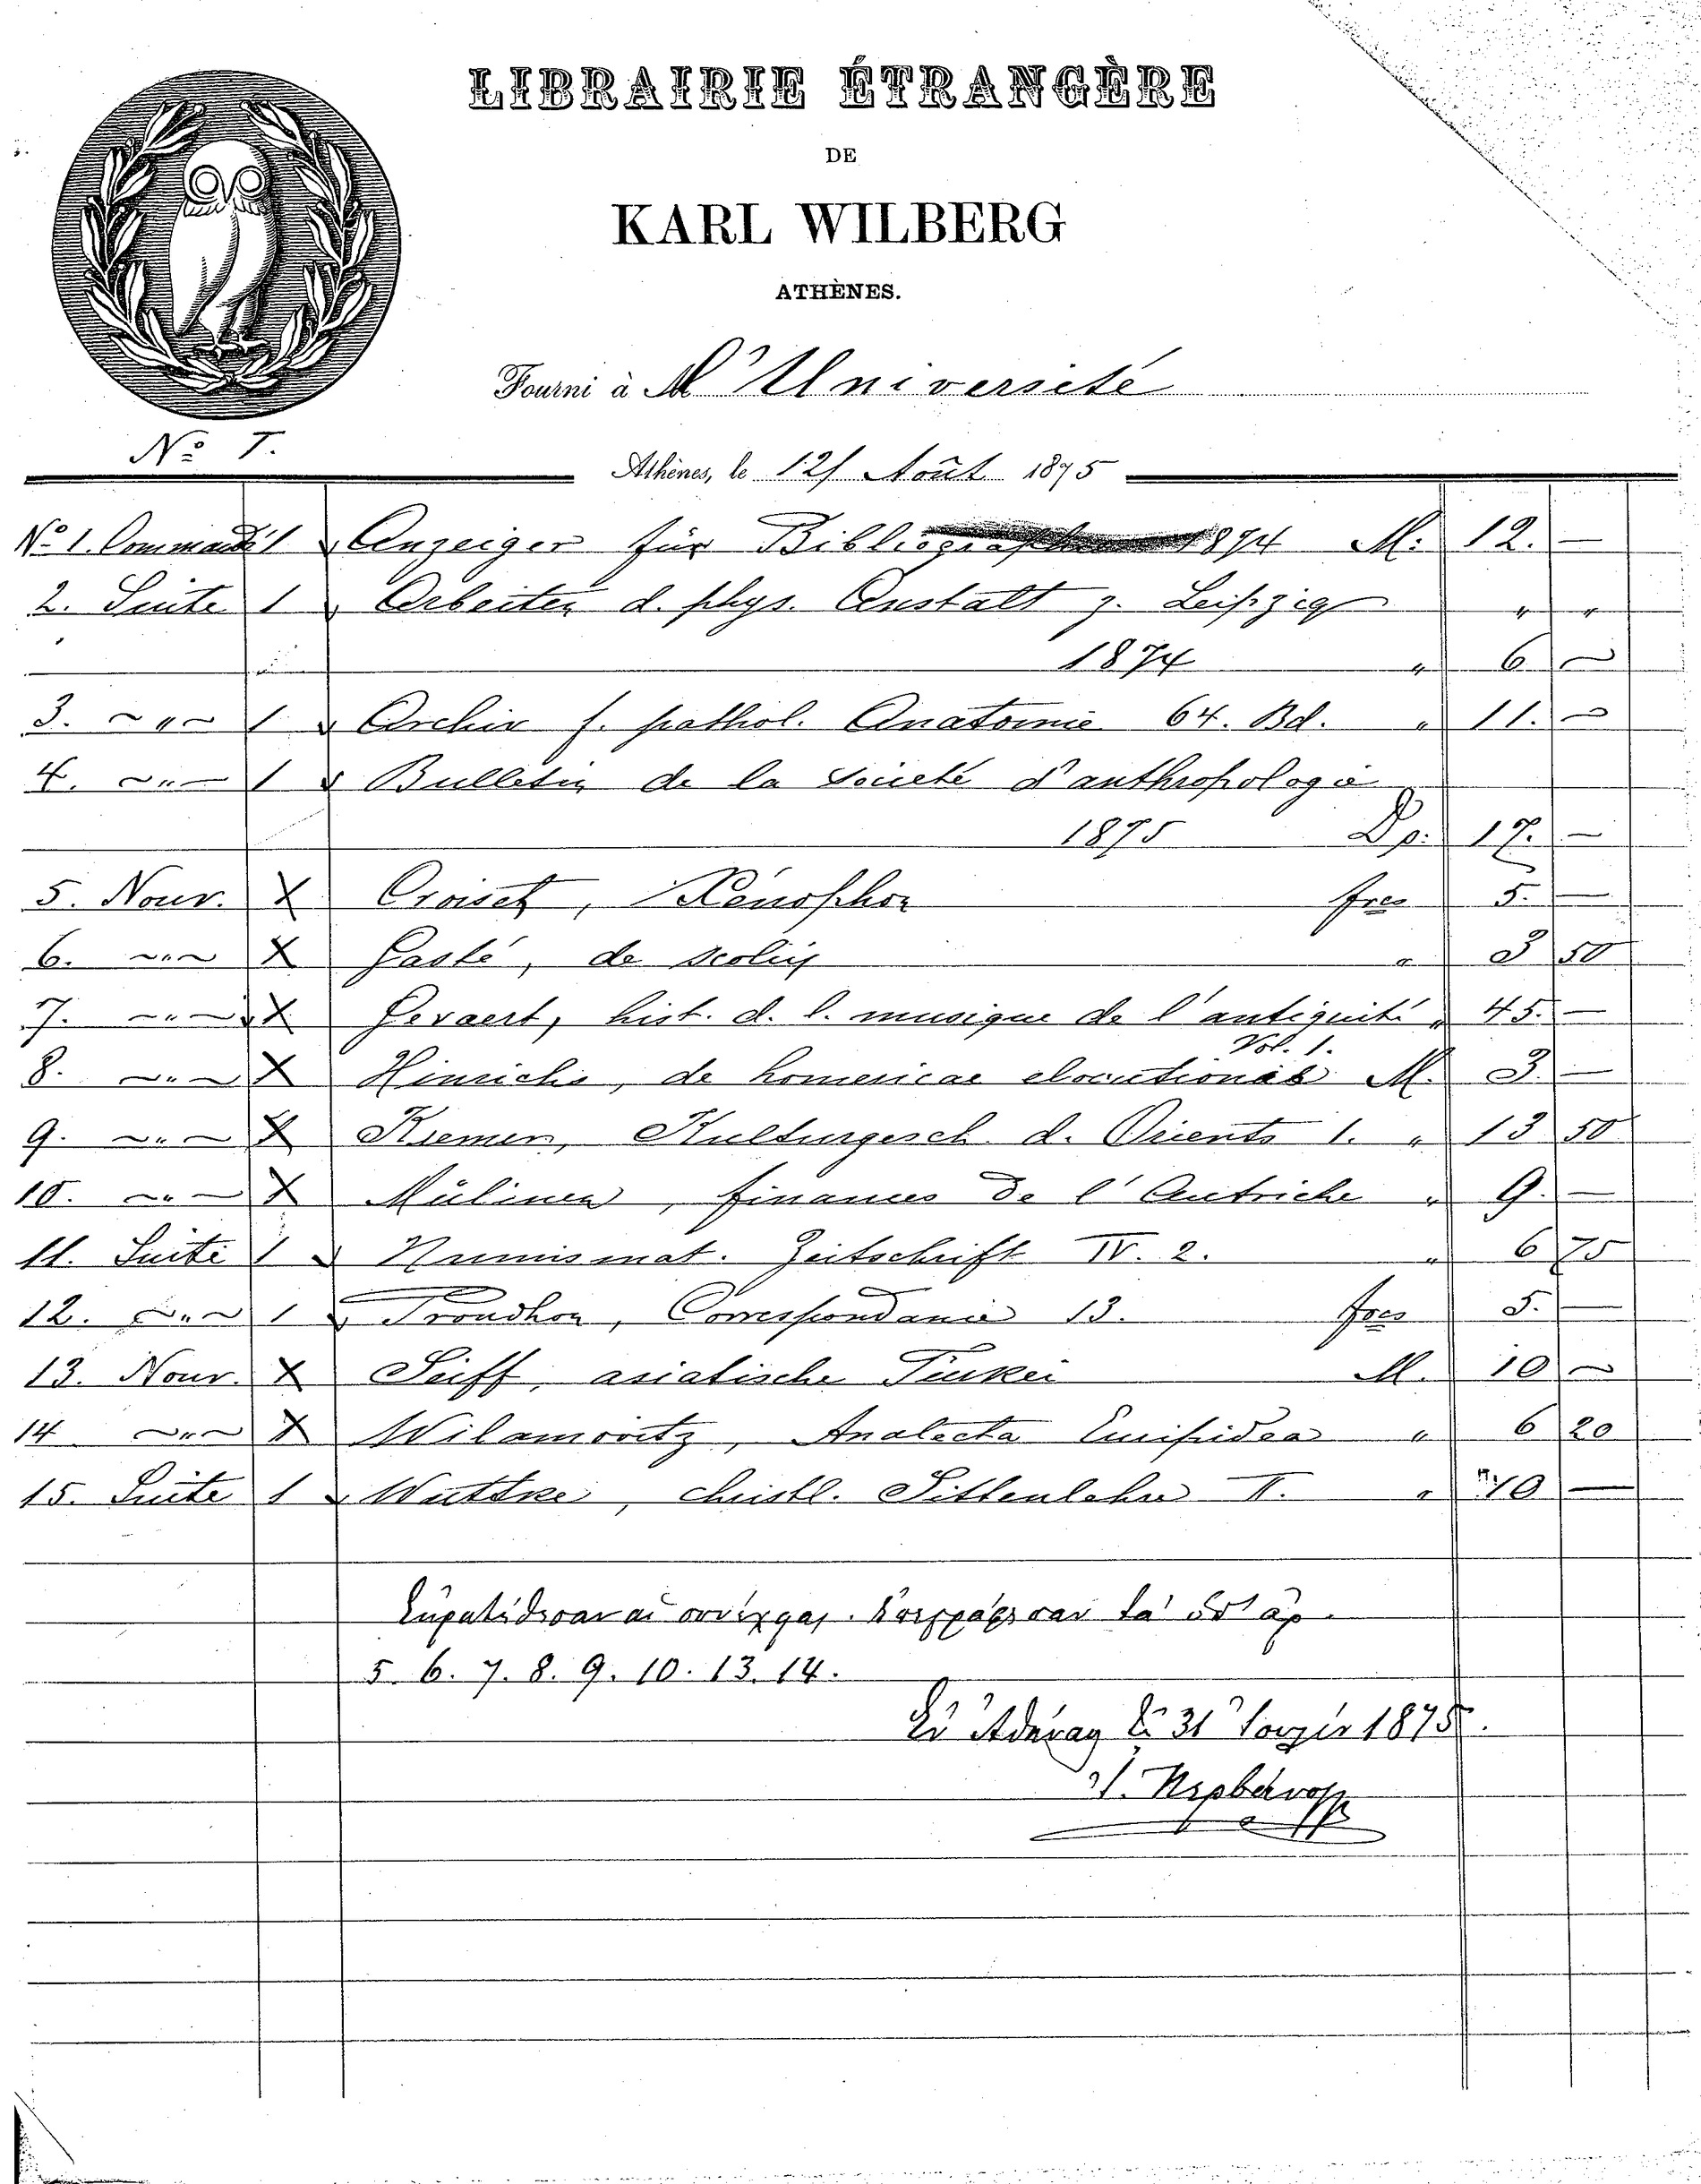 LIBRAIRIE ÉTRANGÈRE
DE
KARL WILBERG
ATHÈNES.
Fourni à l'Université
No I.
Athènes, le 12/ Août 1875
No 1. Commande 1 Anzeiger für 1874 M. 12. —
2. Suite 1 Arbeiten d. phys. Anstalt z. Leipzig " "
1874 " 6 —
3. — " — 1 Archiv f. pathol. Anatomie 64. Bd. " 11. —
4. — " — 1 Bulletin de la Société d'anthropologie
1875 Dρ. 17. —
5. Nouv. X Croiset, Xénophon frcs 5. —
6. — " — X Gasté, de scoliis " 3 50
7. — " — X Gevaert, hist. d. l. musique de l'antiquité " 45. —
Vol. 1.
8. — " — X Hinrichs, de homericae elocutionis M. 3. —
9. — " — X Kremer, Kulturgesch. d. Orients 1. " 13 50
10. — " — X Mülinen, finances de l'Autriche " 9. —
11. Suite 1 Numismat. Zeitschrift IV. 2. " 6 75
12. — " — 1 Proudhon, Correspondance 13. frcs 5. —
13. Nouv. X Seiff, asiatische Türkei M. 10 —
14 — " — X Wilamowitz, Analecta Euripidea " 6 20
15. Suite 1 Wuttke, christl. Sittenlehre II. " 10 —
τὰ ὑπ' ἀρ.
5. 6. 7. 8. 9. 10. 13. 14.
Ἐν Ἀθήναις τῇ 31 1875.